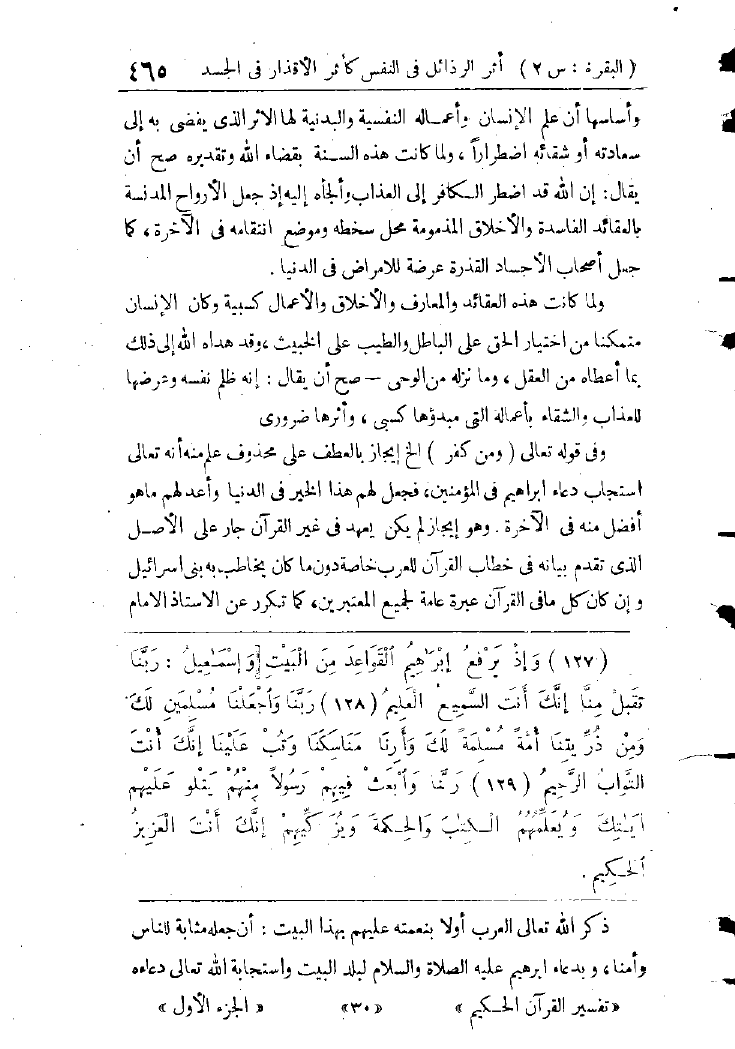 ( البقرة : س ٢ ) أثر الرذائل فى النفس كأثر الأقذار فى الجسد ٤٦٥
وأساسها أن علم الإنسان وأعماله النفسية والبدنية لها الاثر الذى يفضى به إلى
سعادته أو شقائه اضطراراً ، ولما كانت هذه السنة بقضاء الله وتقديره صح أن
يقال : إن الله قد اضطر الكافر إلى العذاب وألجأه إليه إذ جعل الأرواح المدنسة
بالعقائد الفاسدة والأخلاق المذمومة محل سخطه وموضع انتقامه فى الآخرة ، كما
جعل أصحاب الأجساد القذرة عرضة للامراض فى الدنيا .
ولما كانت هذه العقائد والمعارف والأخلاق والأعمال كسبية وكان الإنسان
متمكنا من اختيار الحق على الباطل والطيب على الخبيث ، وقد هداه الله إلى ذلك
بما أعطاه من العقل ، وما نزله من الوحى – صح أن يقال : إنه ظلم نفسه وعرضها
للعذاب والشقاء بأعماله التى مبدؤها كسبى ، وأثرها ضرورى
وفى قوله تعالى ( ومن كفر ) الخ إيجاز بالعطف على محذوف علم منه أنه تعالى
استجاب دعاء ابراهيم فى المؤمنين ، فجعل لهم هذا الخير فى الدنيا وأعد لهم ماهو
أفضل منه فى الآخرة . وهو إيجاز لم يكن يعهد فى غير القرآن جار على الأصل
الذى تقدم بيانه فى خطاب القرآن للعرب خاصة دون ما كان يخاطب به بنى اسرائيل
و إن كان كل مافى القرآن عبرة عامة لجميع المعتبرين ، كما تكرر عن الاستاذ الامام
(١٢٧) وَإِذْ يَرْفَعُ إِبْرَاهِيمُ الْقَوَاعِدَ مِنَ الْبَيْتِ وَإِسْمَاعِيلُ : رَبَّنَا
تَقَبَّلْ مِنَّا إِنَّكَ أَنتَ السَّمِيعُ الْعَلِيمُ (١٢٨) رَبَّنَا وَاجْعَلْنَا مُسْلِمَيْنِ لَكَ
وَمِن ذُرِّيَّتِنَا أُمَّةً مُسْلِمَةً لَكَ وَأَرِنَا مَنَاسِكَنَا وَتُبْ عَلَيْنَا إِنَّكَ أَنْتَ
التَّوَّابُ الرَّحِيمُ (١٢٩) رَبَّنَا وَابْعَثْ فِيهِمْ رَسُولاً مِنْهُمْ يَتْلُو عَلَيْهِم
ءَايَاتِكَ وَيُعَلِّمُهُمُ الْكِتَٰبَ وَالْحِكْمَةَ وَيُزَكِّيهِمْ إِنَّكَ أَنْتَ الْعَزِيزُ
الْحَكِيمُ .
ذكر الله تعالى العرب أولا بنعمته عليهم بهذا البيت : أن جعله مثابة للناس
وأمنا ، و بدعاء ابرهيم عليه الصلاة والسلام لبلد البيت واستجابة الله تعالى دعاءه
« تفسير القرآن الحكيم » «٣٠» « الجزء الأول »